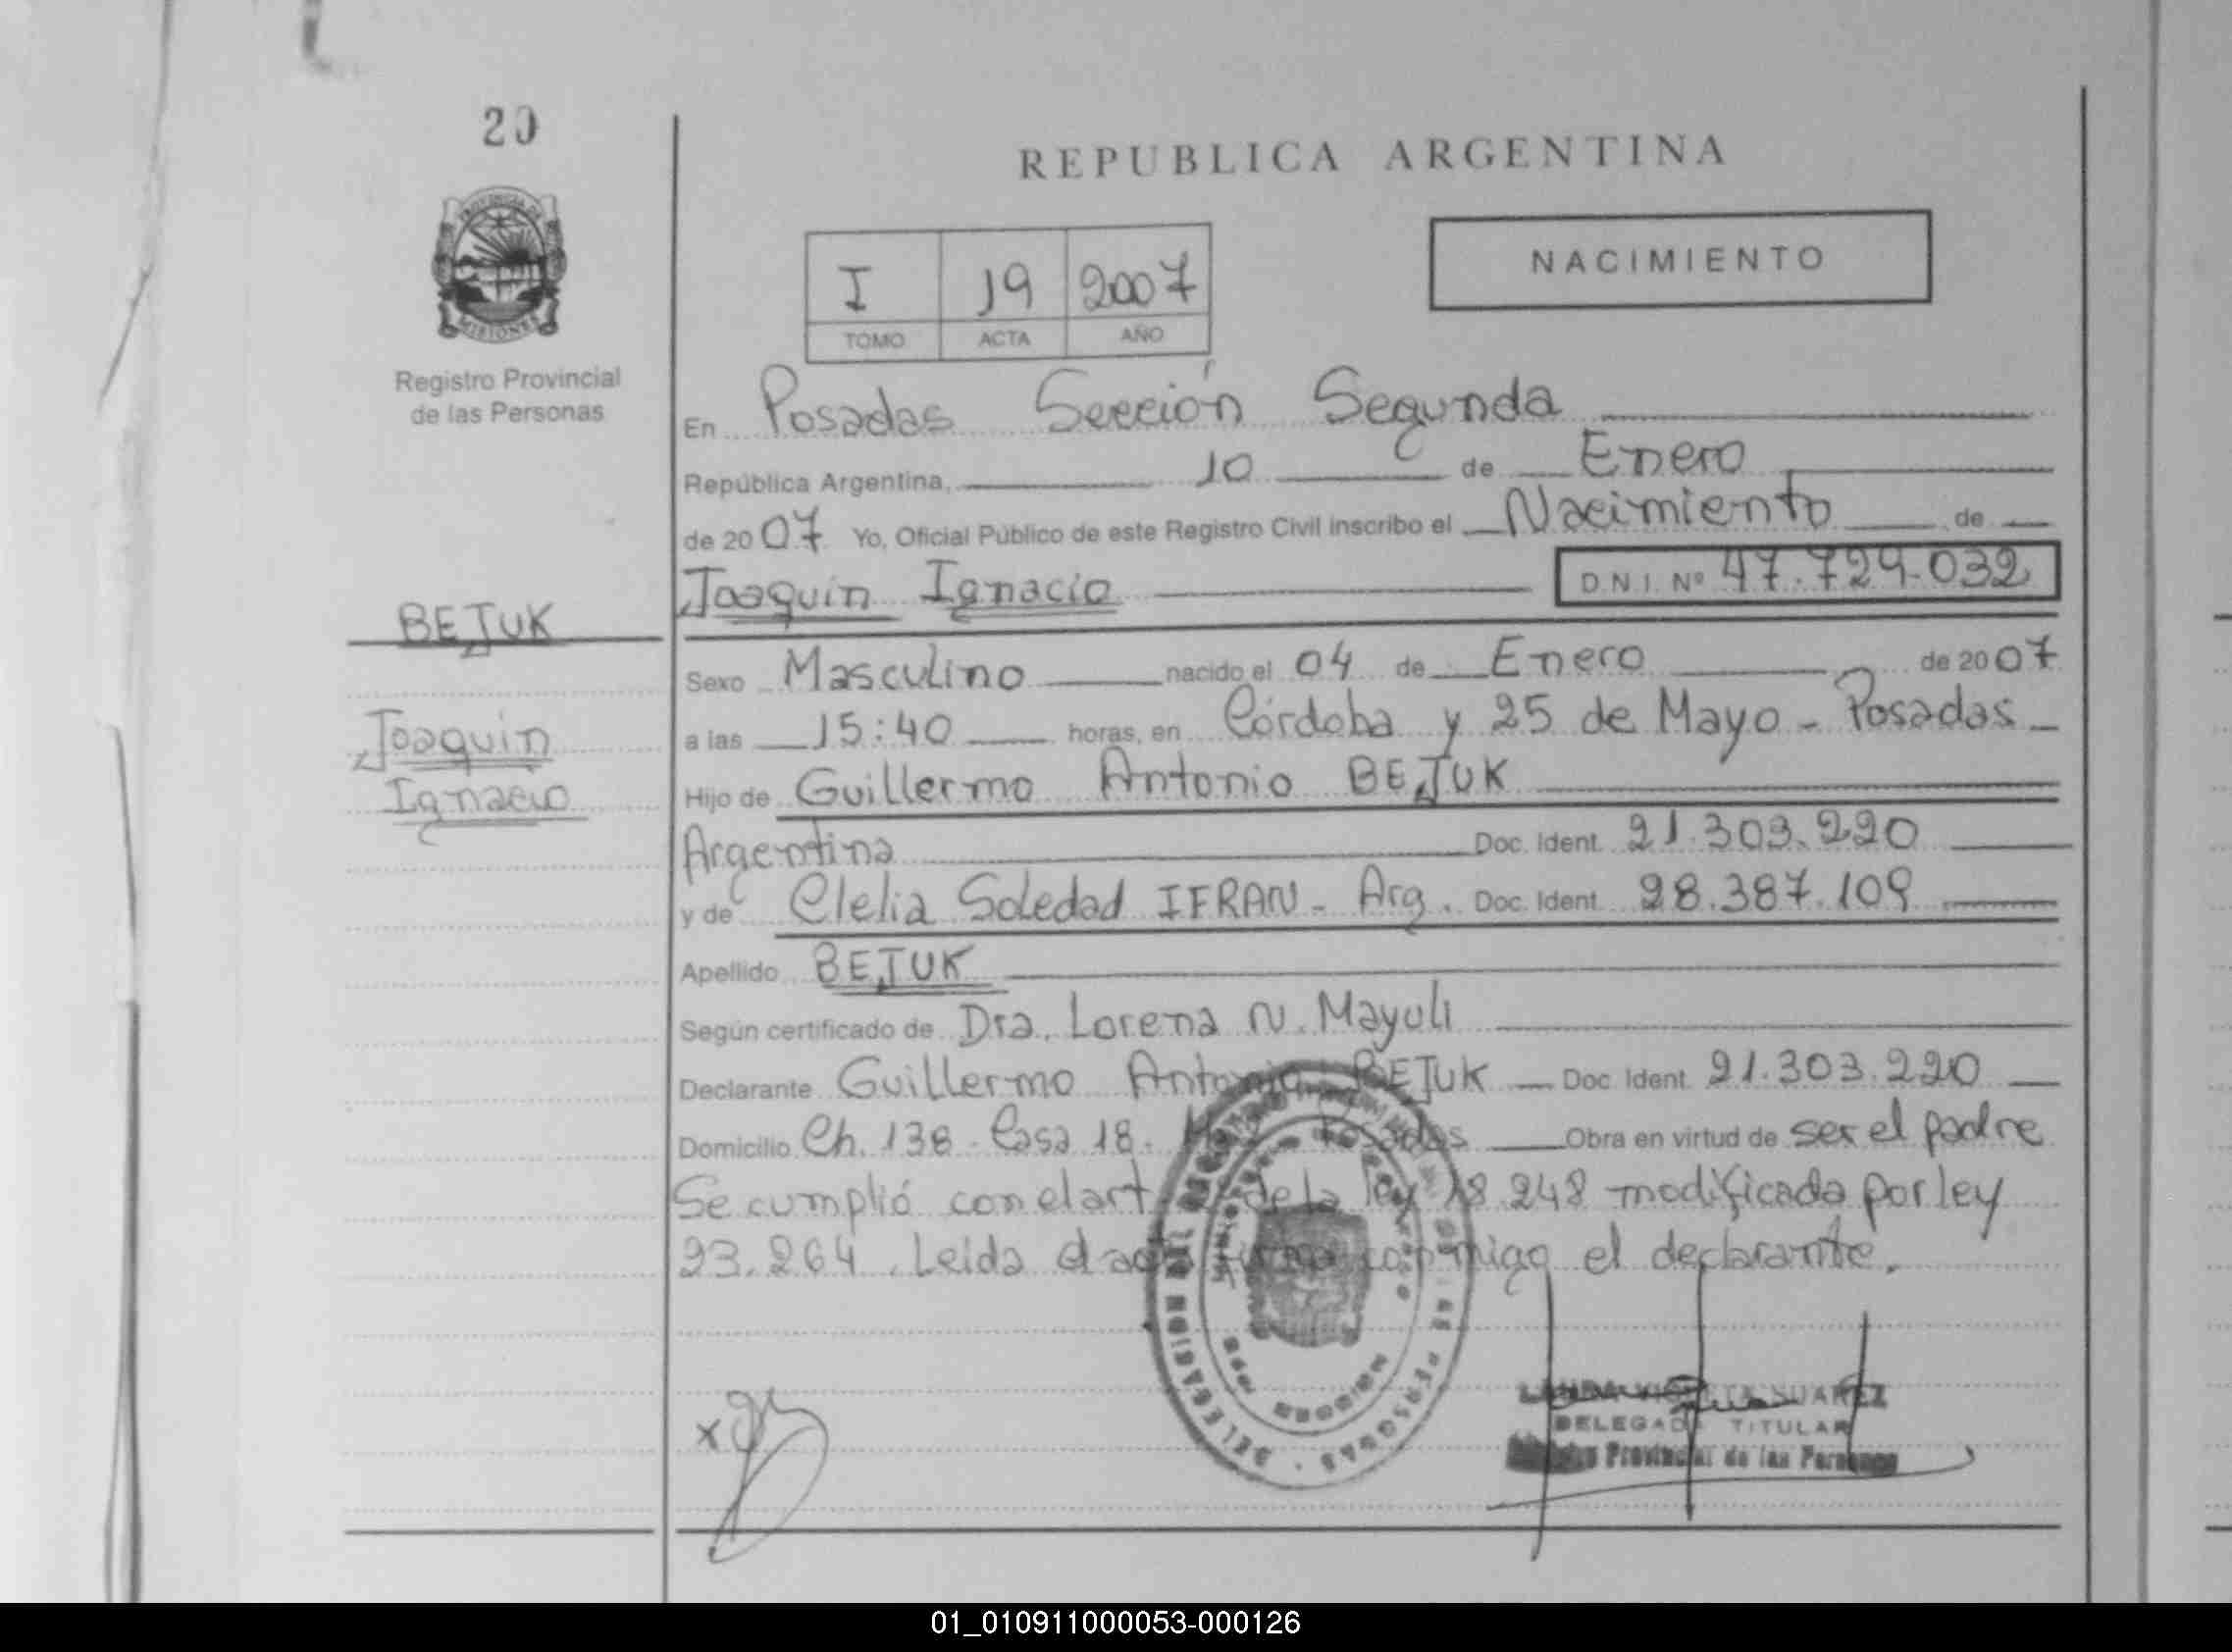 20
REPUBLICA ARGENTINA
PROVINCIA DE
MISIONES
Registro Provincial
de las Personas
I 19 2007
TOMO ACTA AÑO
NACIMIENTO
En Posadas Sección Segunda
República Argentina, 10 de Enero
de 2007 Yo, Oficial Público de este Registro Civil inscribo el Nacimiento de
Joaquin Ignacio D.N.I. Nº 47.729.032
BEJUK
Joaquin
Ignacio
Sexo Masculino nacido el 04 de Enero de 2007
a las 15:40 horas, en Córdoba y 25 de Mayo - Posadas
Hijo de Guillermo Antonio BEJUK
Argentina Doc. Ident. 21.303.220
y de Clelia Soledad IFRAN - Arg. Doc. Ident. 28.387.109
Apellido BEJUK
Según certificado de Dra. Lorena N. Mayuli
Declarante Guillermo Antonio BEJUK Doc. Ident. 21.303.220
Domicilio Ch. 138 - Casa 18. Posadas Obra en virtud de ser el padre
Se cumplió con el art de la ley 18.248 modificada por ley
23.264. Leida el acta firma conmigo el declarante.
x
SUAREZ
DELEGADA TITULAR
Provincial de las Personas
01_010911000053-000126